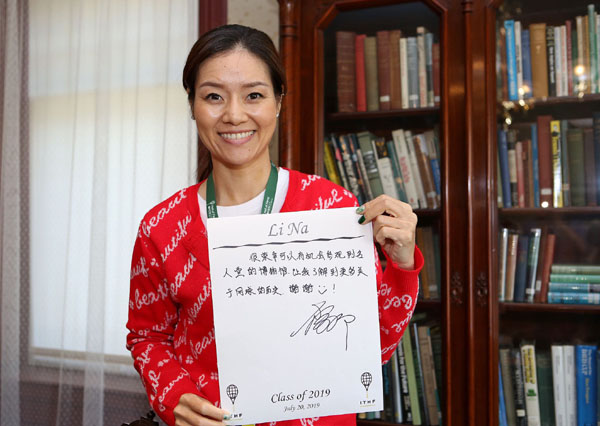 Li Na
很荣幸可以有机会参观到名
人堂的博物馆. 让我了解到更多关
于网球的历史. 谢谢 !
Class of 2019
July 20, 2019
ITHF
beautiful